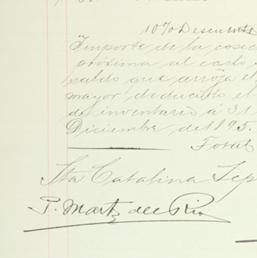 10% Descuento
Importe de la cosec
próxima al costo
saldo que arroja el
mayor, deducido el
del inventario á 31
Diciembre del 95.
Total
Sta Catalina Sep
P. Martz del Rio